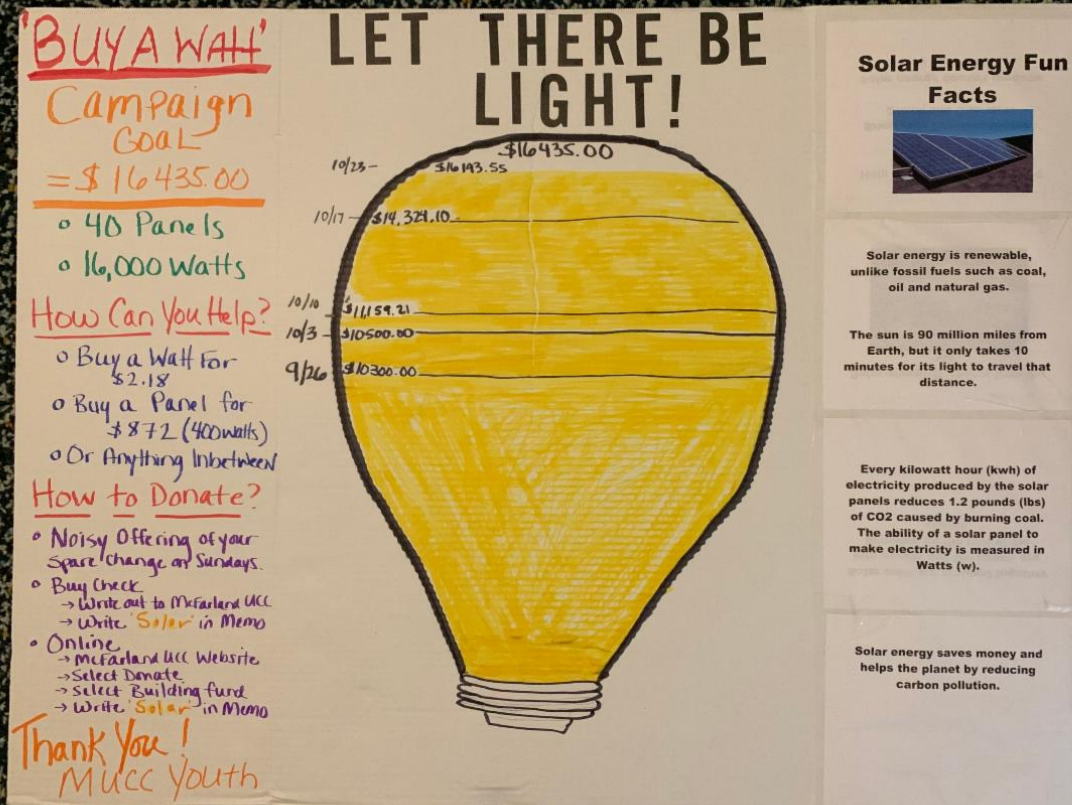 'BUY A WATT'
Campaign
GOAL
= $ 16435.00
o 40 Panels
o 16,000 Watts
How Can You Help?
o Buy a Watt For
$2.18
o Buy a Panel for
$872 (400watts)
o Or Anything Inbetween
How to Donate?
• Noisy Offering of your
Spare change on Sundays.
• Buy Check
→ Write out to McFarland UCC
→ Write 'Solar' in Memo
• Online
→ McFarland Ucc Website
→ Select Donate
→ Select Building fund
→ Write 'Solar' in Memo
Thank You!
MUCC Youth
LET THERE BE
LIGHT!
$16435.00
10/23 – $16193.55
10/17 – $14,329.10
10/10 – $11,159.21
10/3 – $10500.00
9/26 $10300.00
Solar Energy Fun
Facts
Solar energy is renewable,
unlike fossil fuels such as coal,
oil and natural gas.
The sun is 90 million miles from
Earth, but it only takes 10
minutes for its light to travel that
distance.
Every kilowatt hour (kwh) of
electricity produced by the solar
panels reduces 1.2 pounds (lbs)
of CO2 caused by burning coal.
The ability of a solar panel to
make electricity is measured in
Watts (w).
Solar energy saves money and
helps the planet by reducing
carbon pollution.